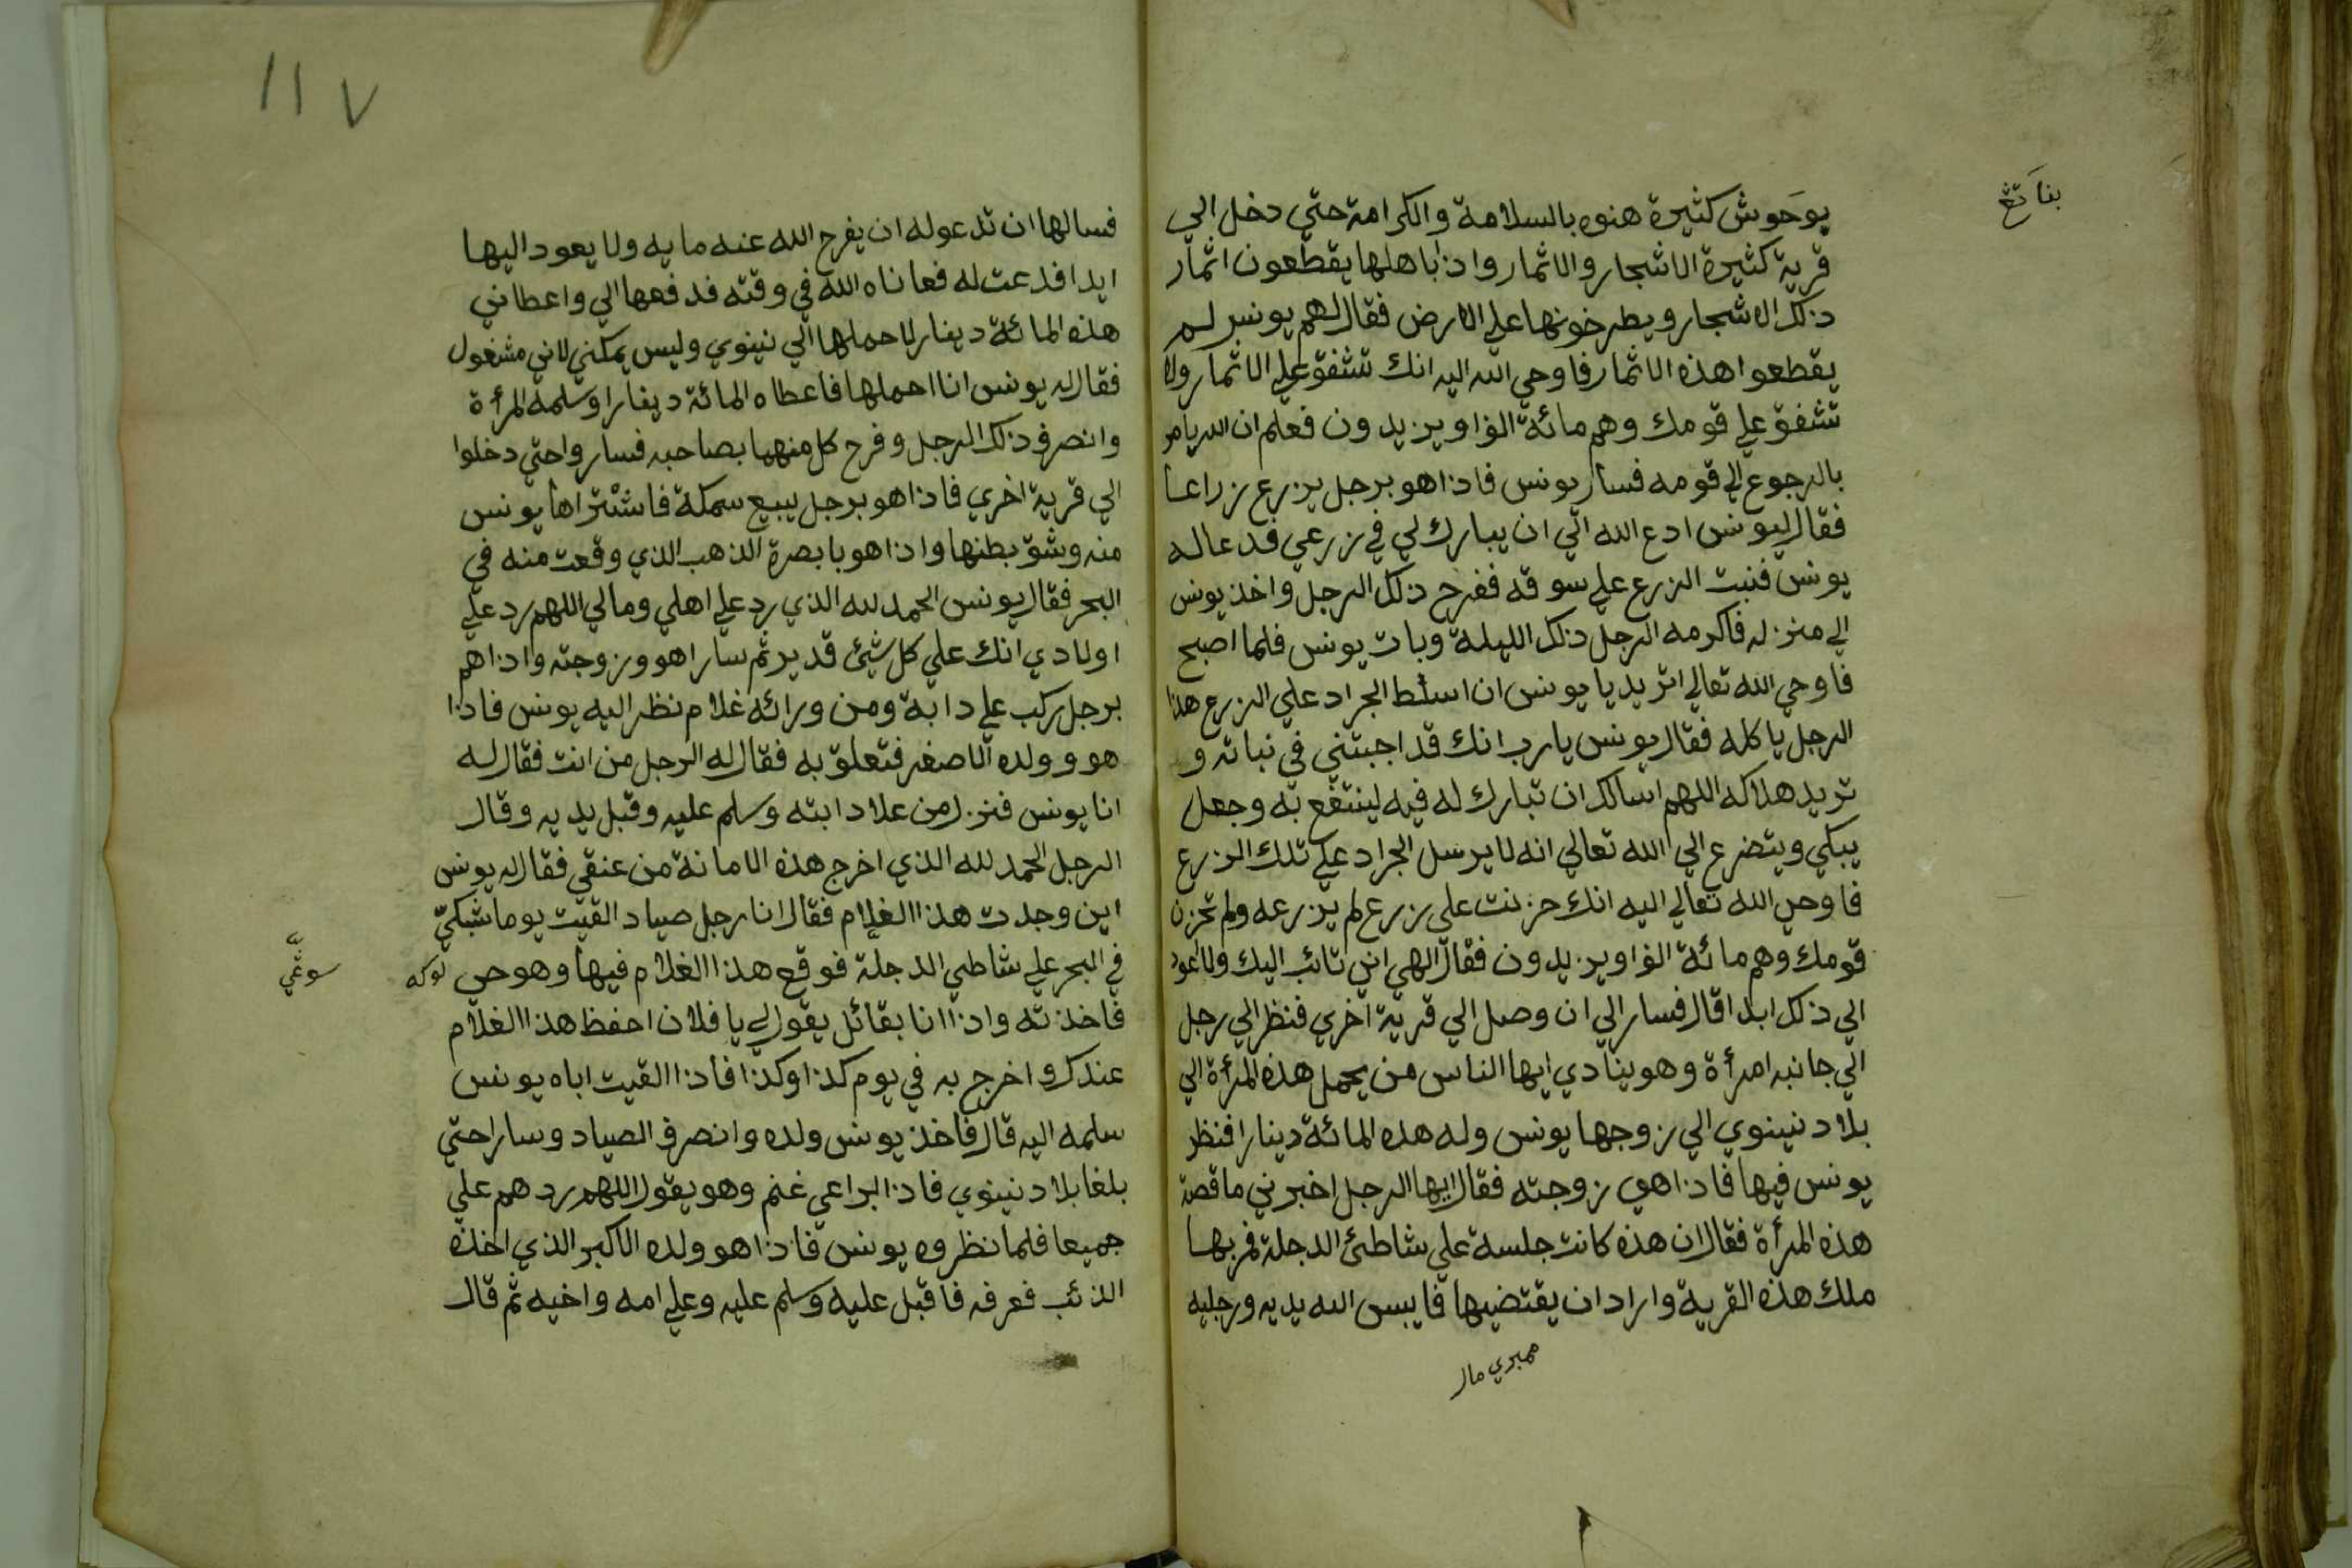 بوحوش كثيرة هنوه بالسلامة والكرامة حتي دخل الي
قرية كثيرة الاشجار والاثمار واذا باهلها يقطعون اثمار
ذلك الاشجار ويطرخونها علي الارض فقال لهم يونس لم
يقطعوا هذه الاثمار فاوحي الله اليه انك تشفق علي الاثمار ولا
تشفق علي قومك وهم مائة الفا او يزيدون فعلم ان الله يامر
بالرجوع الي قومه فسار يونس فاذا هو برجل يزرع زراعا
فقال ليونس ادع الله الي ان يبارك لي في زرعي فدعا له
يونس فنبت الزرع علي سوقه ففرح ذلك الرجل واخذ يونس
الي منزله فاكرمه الرجل ذلك الليلة وبات يونس فلما اصبح
فاوحي الله تعالي اتريد يا يونس ان اسلط الجراد علي الزرع هذا
الرجل ياكله فقال يونس يارب انك قد اجبتني في نباته و
تريد هلاكه اللهم اسالك ان تبارك له فيه لينتفع به وجعل
يبكي ويتضرع الي الله تعالي انه لا يرسل الجراد علي تلك الزرع
فاوحي الله تعالي اليه انك حزنت علي زرع لم يزرعه ولم تحزن
قومك وهم مائة الفا او يزيدون فقال الهي اني تائب اليك ولا اعود
الي ذلك ابدا قال فسار الي ان وصل الي قرية اخري فنظر الي رجل
الي جانبه امرأة وهو ينادي ايها الناس من يحمل هذه المرأة الي
بلاد نينوي الي زوجها يونس وله هذه المائة دينارا فنظر
يونس فيها فاذا هي زوجته فقال ايها الرجل اخبرني ما قصة
هذه المرأة فقال ان هذه كانت جلسة علي شاطئ الدجلة فمر بها
ملك هذه القرية واراد ان يقتضيها فايبس الله يديه ورجليه
فسالها ان تدعو له ان يفرج الله عنه ما به ولا يعود اليها
ابدا فدعت له فعافاه الله في وقته فدفعها الي واعطاني
هذه المائة دينار لاحملها الي نينوي وليس يمكني لاني مشغول
فقال له يونس انا احملها فاعطاه المائة دينارا وسلمه المرأة
وانصرف ذلك الرجل وفرح كل منهما بصاحبه فساروا حتي دخلوا
الي قرية اخري فاذا هو برجل يبيع سمكة فاشتراها يونس
منه وشق بطنها واذا هو بابصرة الذهب الذي وقعت منه في
البحر فقال يونس الحمد لله الذي رد علي اهلي ومالي اللهم رد علي
اولادي انك علي كل شيئ قدير ثم سارا هو وزوجته واذا هم
برجل ركب علي دابة ومن ورائه غلام نظر اليه يونس فاذا
هو وولده الاصغر فتعلق به فقال له الرجل من انت فقال له
انا يونس فنزل من علا دابته وسلم عليه وقبل يديه وقال
الرجل الحمد لله الذي اخرج هذه الامانة من عنقي فقال له يونس
اين وجدت هذا الغلام فقال انا رجل صياد القيت يوما شبكي
في البحر علي شاطي الدجلة فوقع هذا الغلام فيها وهو حي
فاخذته واذا انا بقائل يقول لي يا فلان احفظ هذا الغلام
عندك واخرج به في يوم كذا وكذا فاذا القيت اباه يونس
سلمه اليه قال فاخذ يونس ولده وانصرف الصياد وسارا حتي
بلغا بلاد نينوي فاذا براعي غنم وهو يقول اللهم ردهم علي
جميعا فلما نظروه يونس فاذا هو ولده الاكبر الذي اخذه
الذئب فعرفه فاقبل عليه وسلم عليه وعلي امه واخيه ثم قال
١١٧